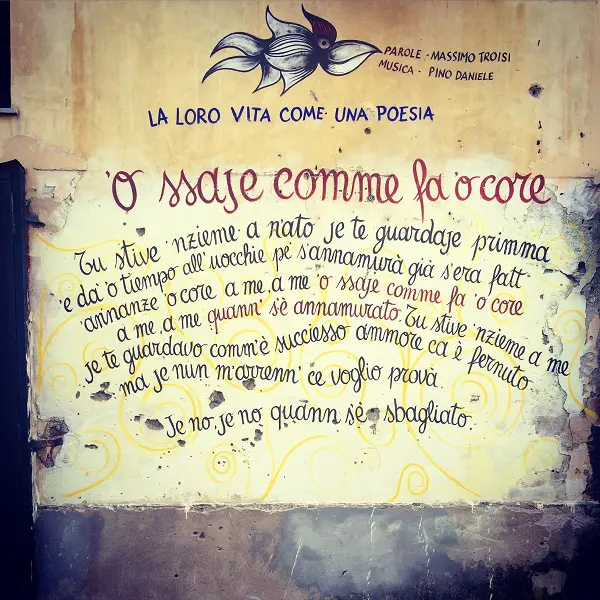 PAROLE - MASSIMO TROISI
MUSICA - PINO DANIELE
LA LORO VITA COME UNA POESIA
'O SSAJE COMME FA 'O CORE
Tu stive 'nzieme a n'ato je te guardaje primma
e da' 'o tiempo all' uocchie pe' s'annamurà già s'era fatt
annanze 'o core a me, a me 'o ssaje comme fa 'o core
a me, a me quann' s'è annamurato. Tu stive 'nzieme a me
je te guardavo comm'è successo ammore ca è fernuto
ma je nun m'arrenn' ce voglio provà.
Je no, je no quann s'è sbagliato.